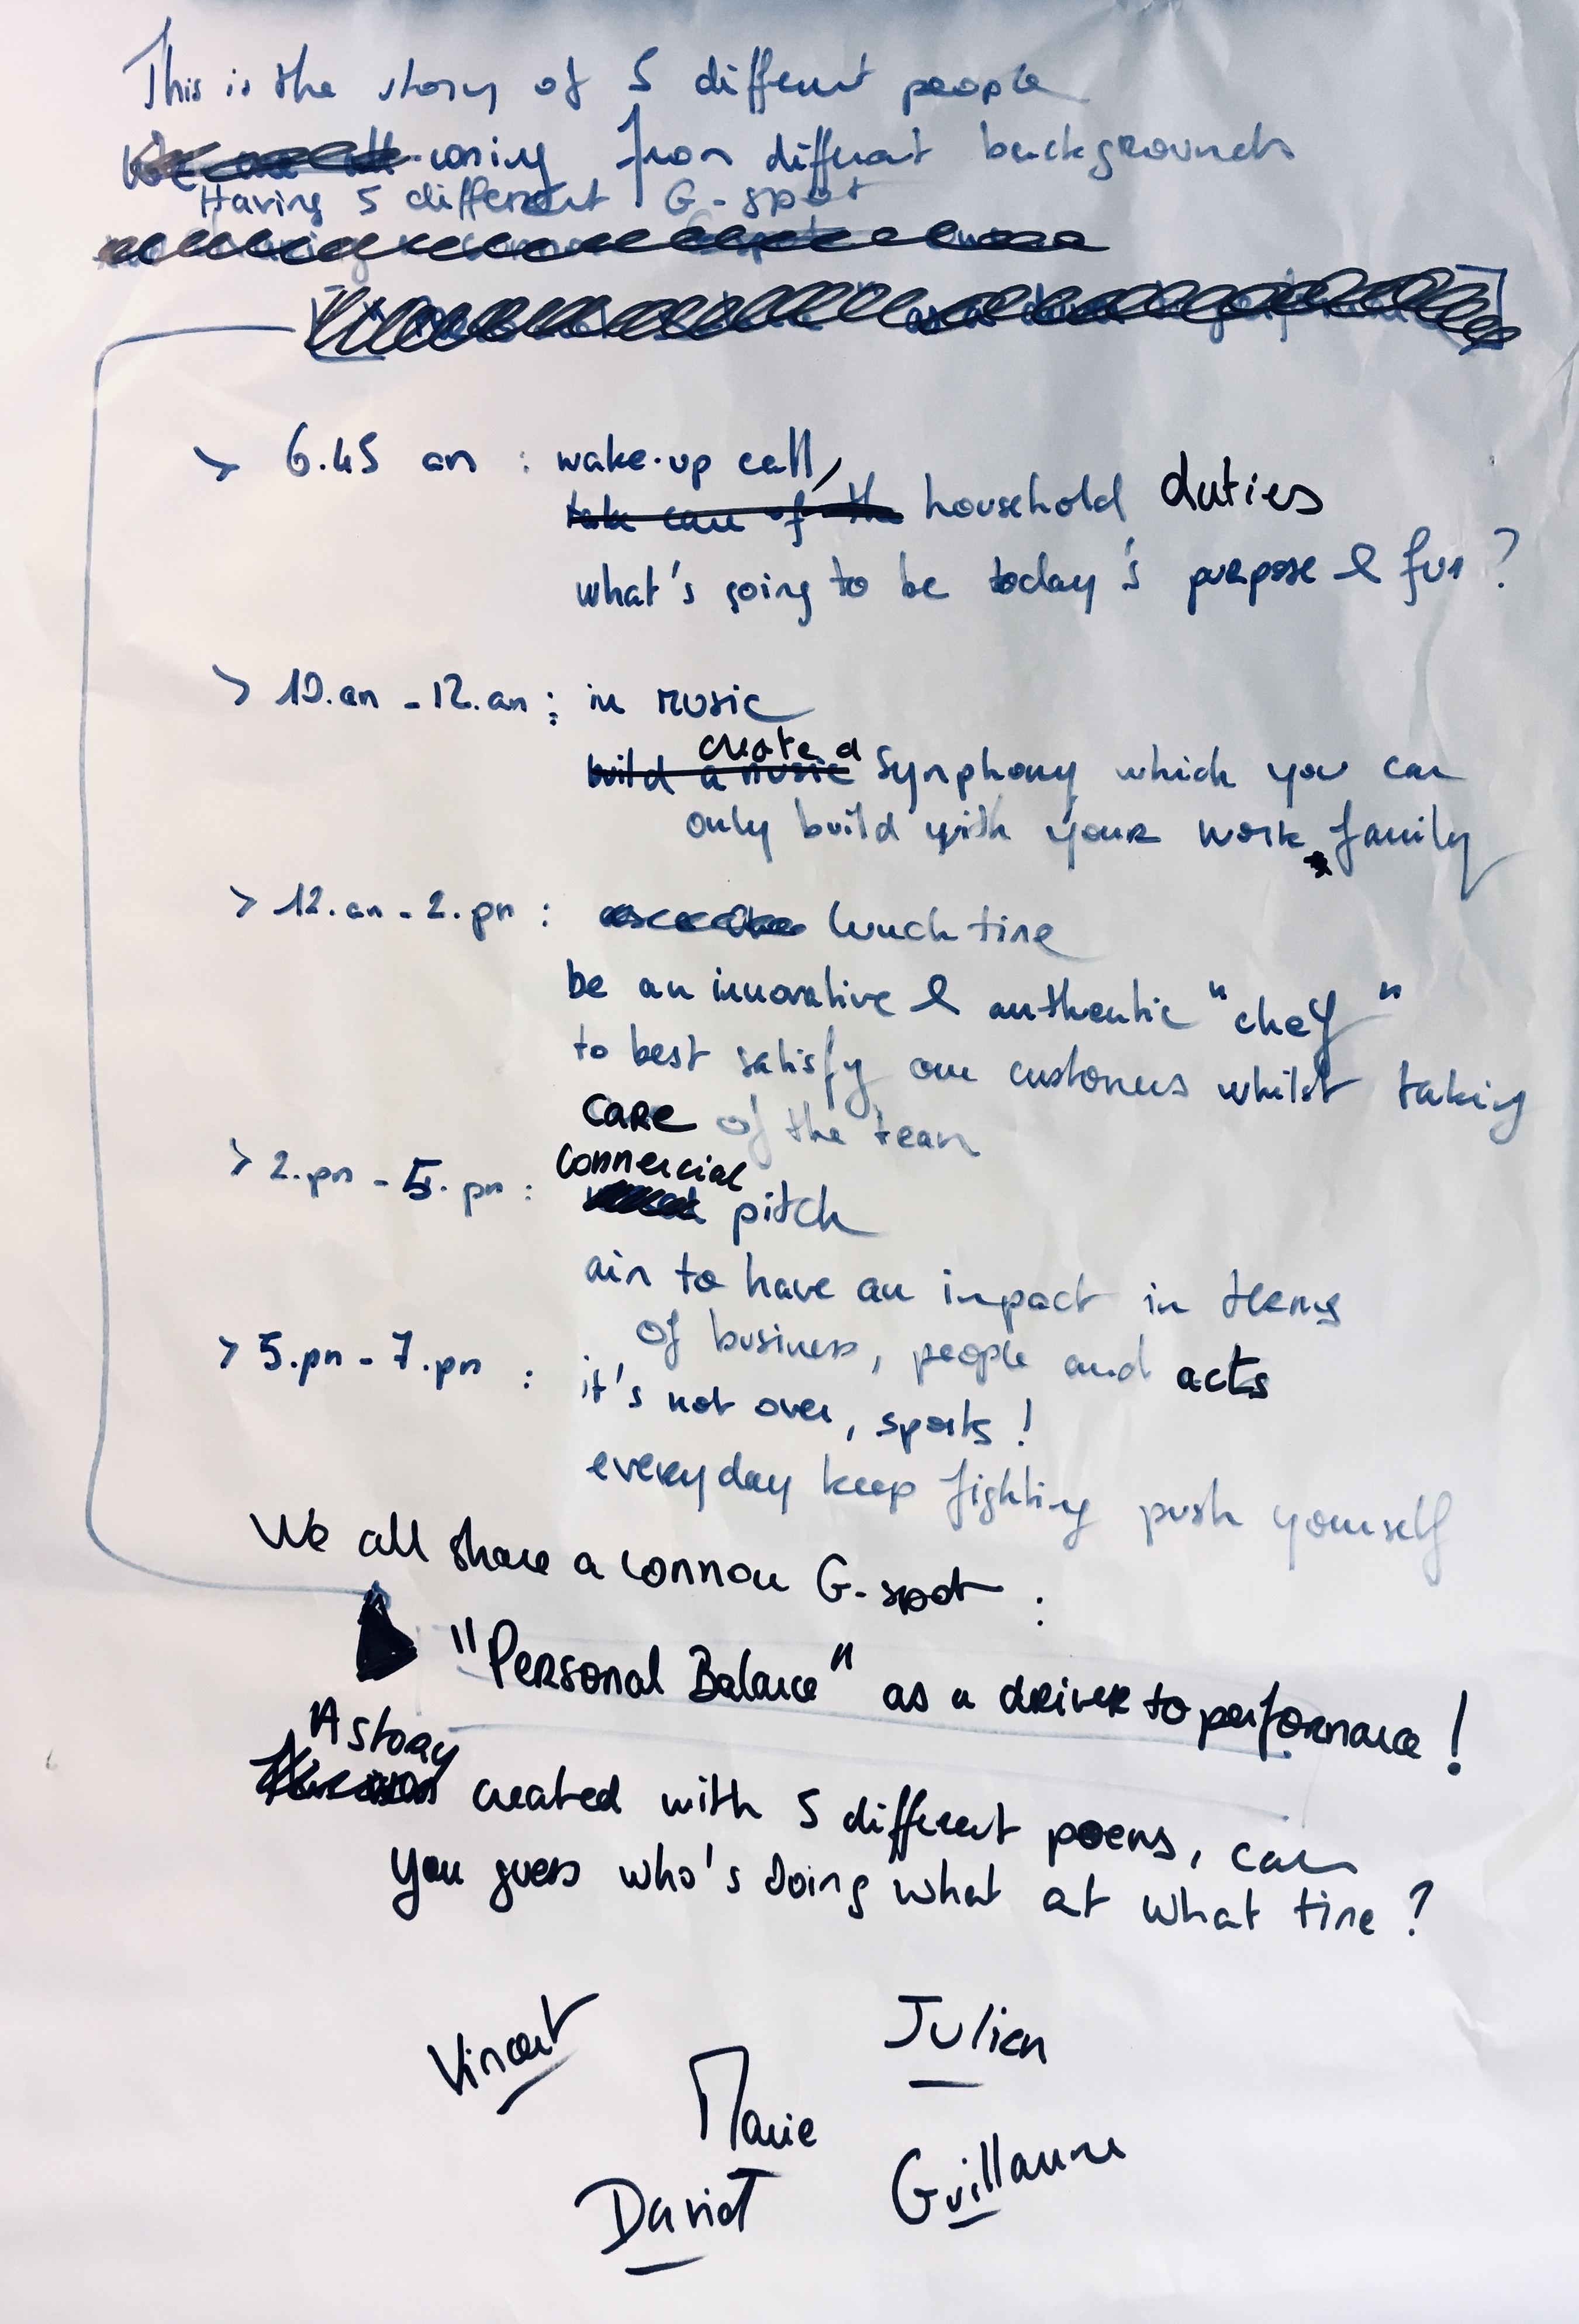 This is the story of 5 different people
We are all coming from different backgrounds
Having 5 different G-spot
as a
> 6.45 am : wake-up call,
take care of the household duties
what's going to be today's purpose & fun ?
> 10.am - 12.am : in music
create a
build a music symphony which you can
only build with your work family
> 12.am - 2.pm : lunch time
be an innovative & authentic "chef"
to best satisfy our customers whilst taking
care of the team
> 2.pm - 5.pm : commercial
pitch
aim to have an impact in terms
of business, people and acts
> 5.pm - 7.pm : it's not over, sports !
everyday keep fighting push yourself
We all share a common G-spot :
"Personal Balance" as a driver to performance !
A story
created with 5 different poems, can
you guess who's doing what at what time ?
Vincent
Julien
Marie
Guillaume
David